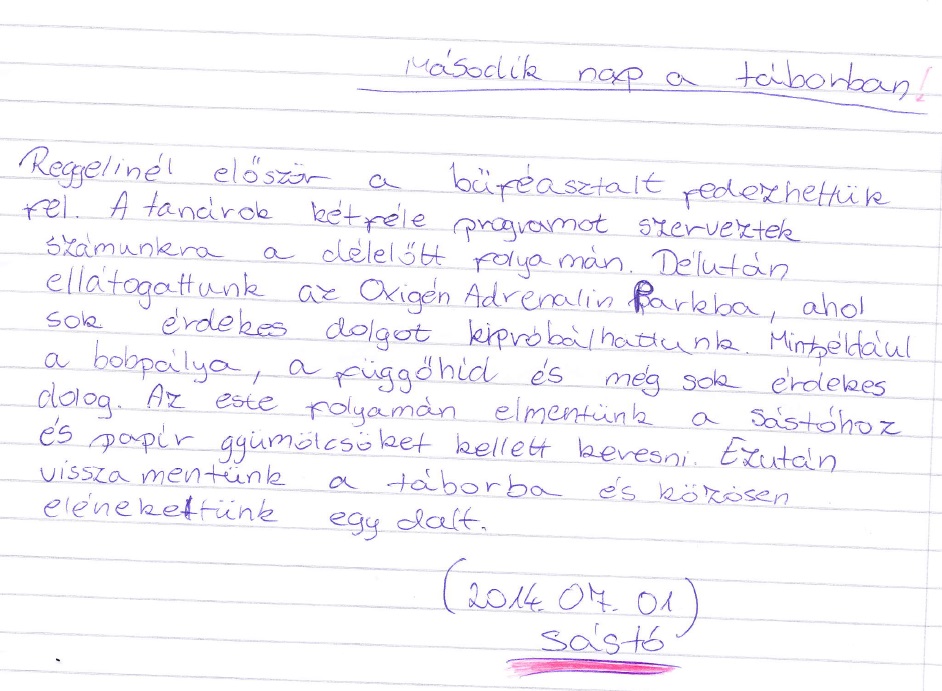 Második nap a táborban!
Reggelinél először a büféasztalt fedezhettük
fel. A tanárok kétféle programot szerveztek
számunkra a délelőtt folyamán. Délután
ellátogattunk az Oxigén Adrenalin Parkba, ahol
sok érdekes dolgot kipróbálhattunk. Mintpéldául
a bobpálya, a függőhíd és még sok érdekes
dolog. Az este folyamán elmentünk a Sástóhoz
és papír gyümölcsöket kellett keresni. Ezután
vissza mentünk a táborba és közösen
elénekeltünk egy dalt.
(2014. 07. 01)
Sástó